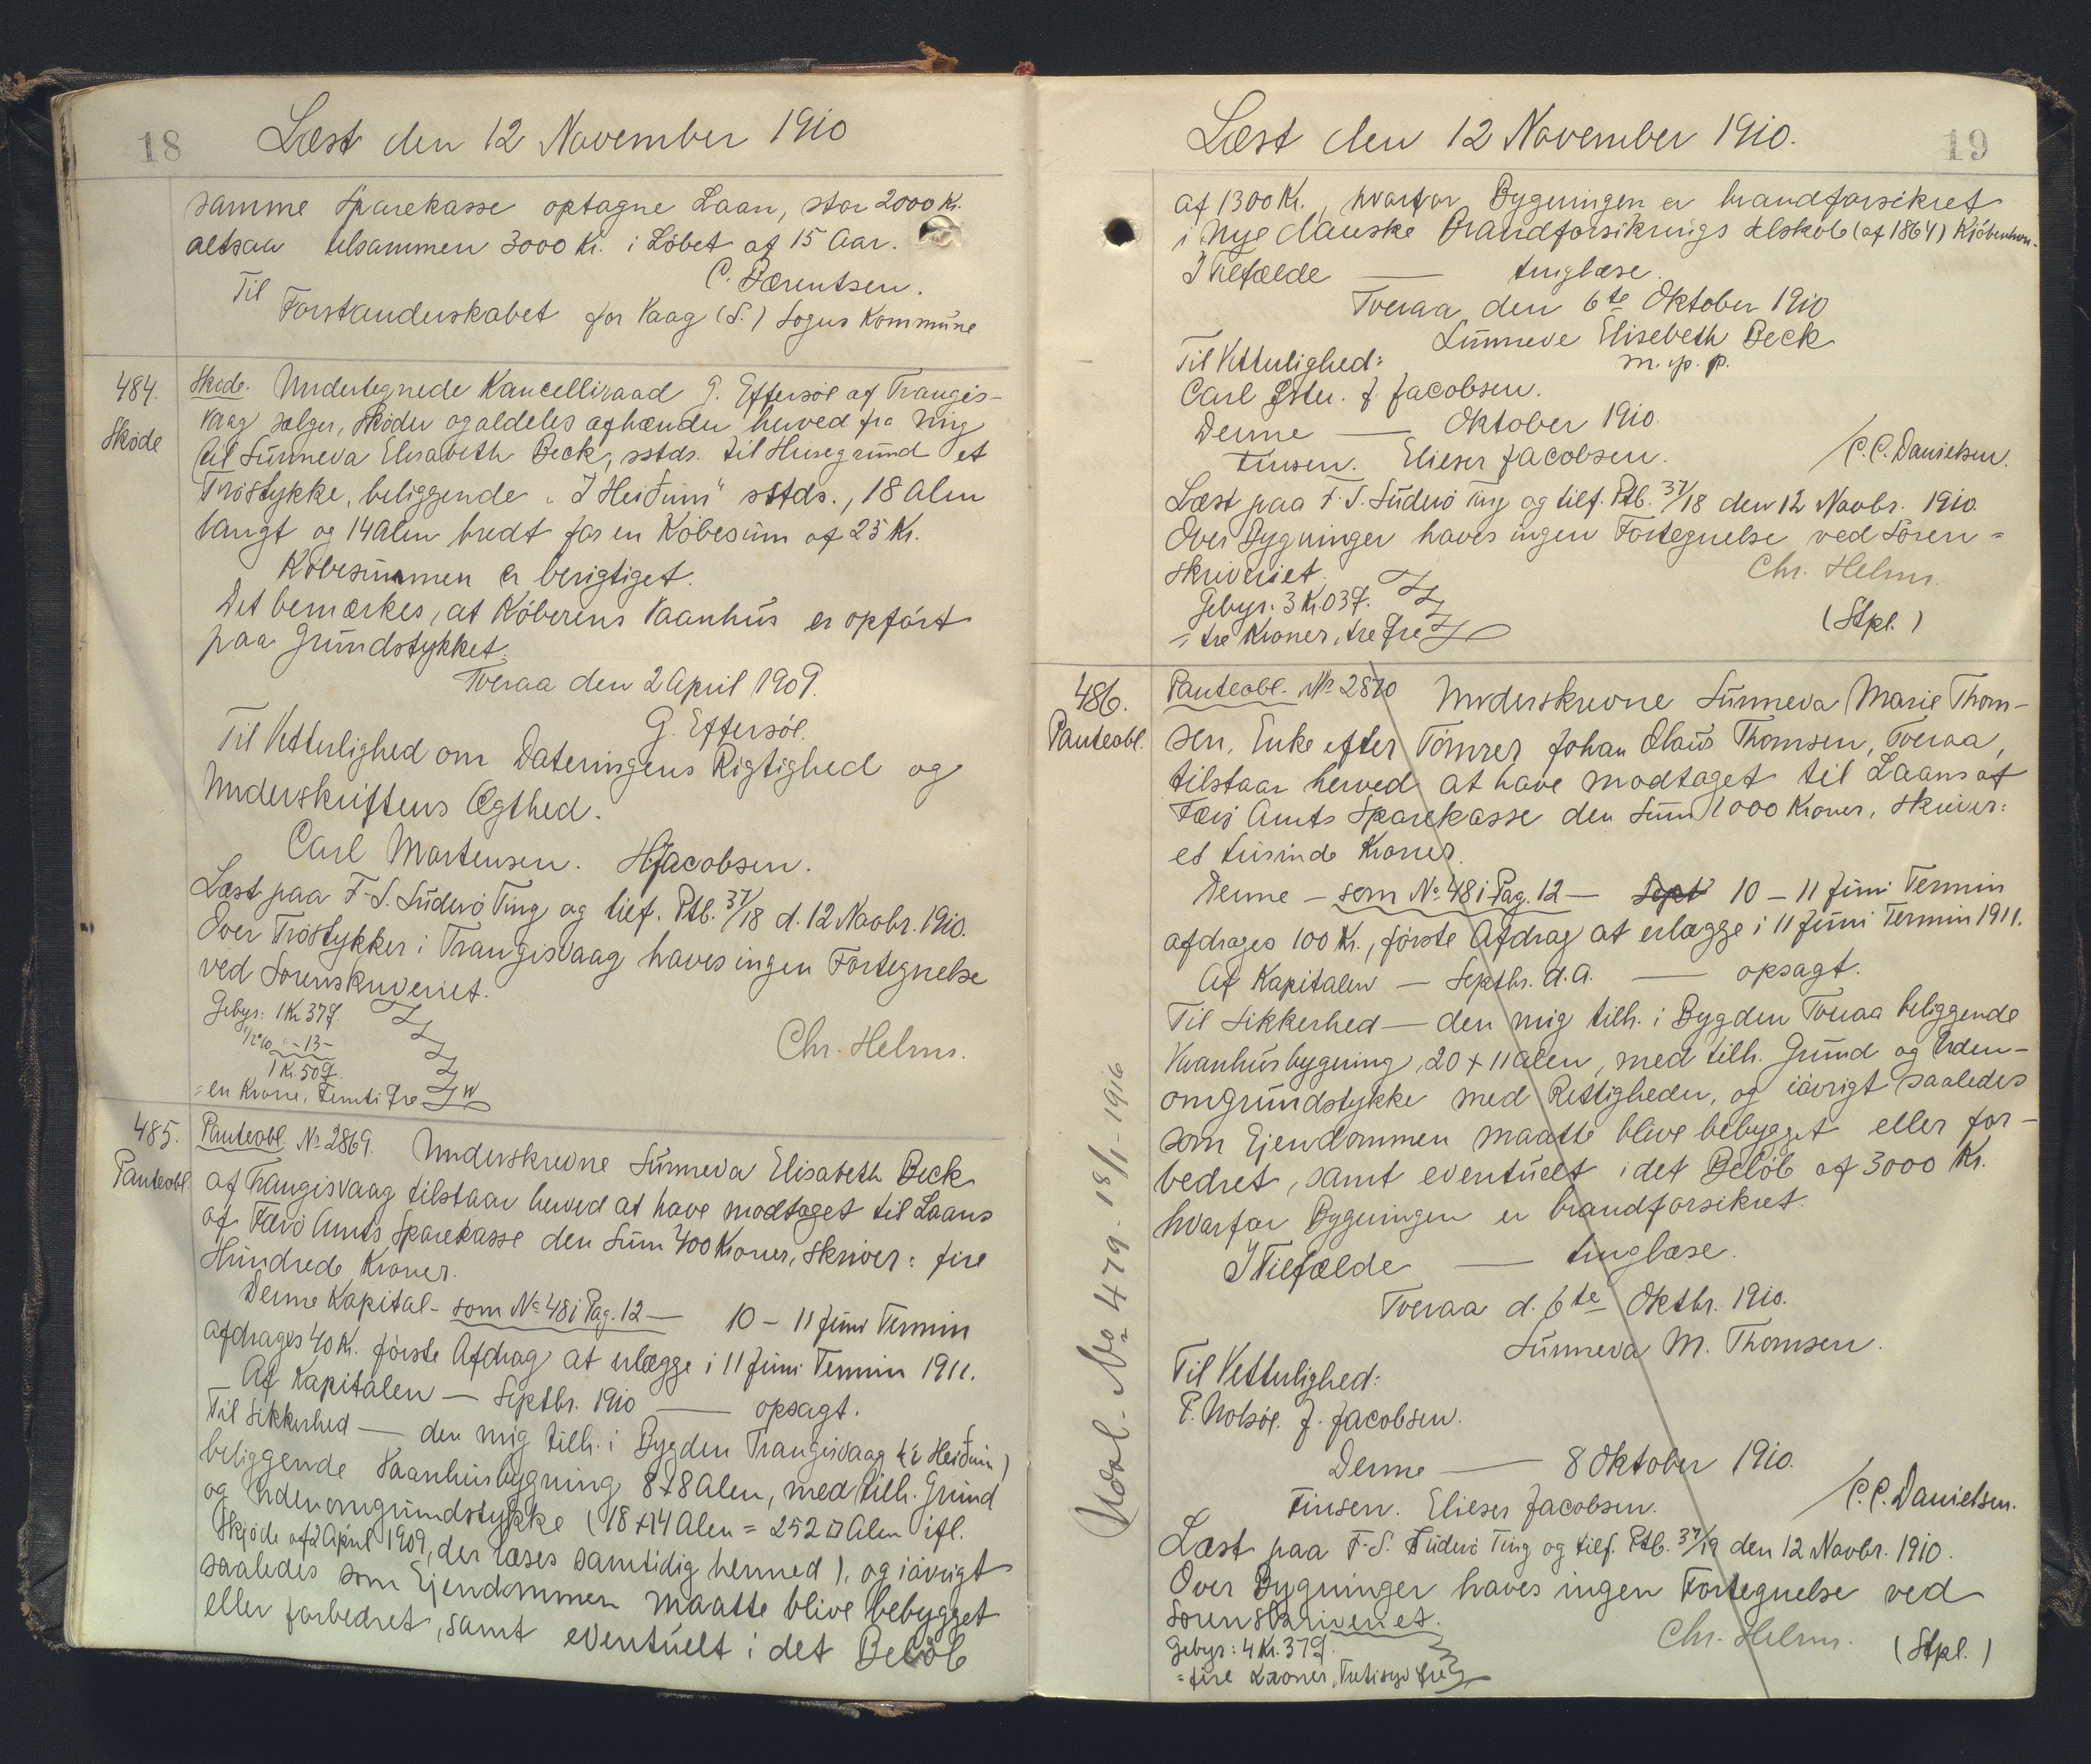 18
Læst den 12 November 1910
samme Sparekasse optagne Laan, stor 2000 Kr.
altsaa tilsammen 3000 Kr. i Löbet af 15 Aar.
C. Bærentsen.
Til
Forstanderskabet for Vaag (S.) Sogns Kommune
484.
Sköde
Sköde. Undertegnede Kancelliraad G. Effersöe af Trangis-
vaag sælger, sköder og aldeles afhænder herved fra mig
til Sunneva Elisabeth Beck, sstds. til Husegrund et
Tröstykke, beliggende "I Heiðum" sstds., 18 Alen
langt og 14 Alen bredt for en Köbesum af 25 Kr.
Köbesummen er berigtiget.
Det bemærkes, at Köberens Vaanhus er opfört
paa Grundstykket.
Tveraa den 2 April 1909.
G. Effersöe.
Til Vitterlighed om Dateringens Rigtighed og
Underskriftens Ægthed.
Carl Mortensen. HJacobsen.
Læst paa F.S. Suderö Ting og tilf. Ptb. 37/18 d. 12 Novbr. 1910.
Over Tröstykker i Trangisvaag haves ingen Fortegnelse
ved Sorenskriveriet.
Gebyr: 1 Kr. 37 Ø.
1/2 % " - 13 -
1 Kr. 50 Ø.
= en Krone, Femti Øre
Chr. Helms.
485.
Panteobl.
Panteobl. No 2869. Underskrevne Sunneva Elisabeth Beck
af Trangisvaag tilstaar herved at have modtaget til Laans
af Færö Amts Sparekasse den Sum 400 Kroner, skriver: fire
Hundrede Kroner.
Denne Kapital - som No 481 Pag. 12 — 10 - 11 Juni Termin
afdrages 40 Kr. förste Afdrag at erlægge i 11 Juni Termin 1911.
Af Kapitalen — Septbr. 1910 — opsagt.
Til Sikkerhed — den mig tilh. i Bygden Trangisvaag (i Heiðum)
beliggende Vaanhusbygning 8 + 8 Alen, med tilh. Grund
og Udenomgrundstykke (18 + 14 Alen = 252 □ Alen ifl.
Skjöde af 2 April 1909, der læses samtidig hermed), og iövrigt
saaledes som Ejendommen maatte blive bebygget
eller forbedret, samt eventuelt i det Belöb
Læst den 12 November 1910.
19
af 1300 Kr., hvorfor Bygningen er brandforsikret
i Nye danske Brandforsikrings Selskab (af 1864) Kjöbenhavn.
I Tilfælde — tinglæse.
Tveraa den 6te Oktober 1910
Sunneve Elisebeth Beck
m. p. p.
Til Vitterlighed:
Carl Mortn. J. Jacobsen.
Denne — Oktober 1910.
Finsen. Elieser Jacobsen. /C.C. Danielsen.
Læst paa F.S. Suderö Ting og tilf. Ptb. 37/18 den 12 Novbr. 1910.
Over Bygninger haves ingen Fortegnelse ved Soren=
skriveriet.
Chr. Helms.
Gebyr: 3 Kr. 03 Ø.
= tre Kroner, tre Øre
(Stpl.)
486.
Panteobl.
Panteobl. No 2870 Underskrevne Sunneva Marie Thom-
sen, Enke efter Tömrer Johan Olaus Thomsen, Tveraa,
tilstaar herved at have modtaget til Laans af
Færö Amts Sparekasse den Sum 1000 Kroner, skriver:
et tusinde Kroner.
Denne - som No 481 Pag. 12 — Sept 10 - 11 Juni Termin
afdrages 100 Kr., förste Afdrag at erlægge i 11 Juni Termin 1911.
Af Kapitalen — Septbr. d.A. — opsagt.
Til Sikkerhed — den mig tilh. i Bygden Tveraa beliggende
Vaanhusbygning, 20 + 11 Alen, med tilh. Grund og Uden-
omgrundstykke med Rettigheder, og iövrigt saaledes
som Ejendommen maatte blive bebygget eller for-
bedret, samt eventuelt i det Belöb af 3000 Kr.
hvorfor Bygningen er brandforsikret.
I Tilfælde — tinglæse.
Tveraa d. 6te Oktbr. 1910.
Sunneva M. Thomsen.
Til Vitterlighed:
P. Nolsöe. J. Jacobsen.
Denne — 8 Oktober 1910.
Finsen. Elieser Jacobsen. /C.C. Danielsen.
Læst paa F.S. Suderö Ting og tilf. Ptb. 37/19 den 12 Novbr. 1910.
Over Bygninger haves ingen Fortegnelse ved
Sorenskriveriet.
Chr. Helms. (Stpl.)
Gebyr: 4 Kr. 37 Ø.
= fire Kroner, Tretisyv Øre
Udsl. No 479. 18/1-1916